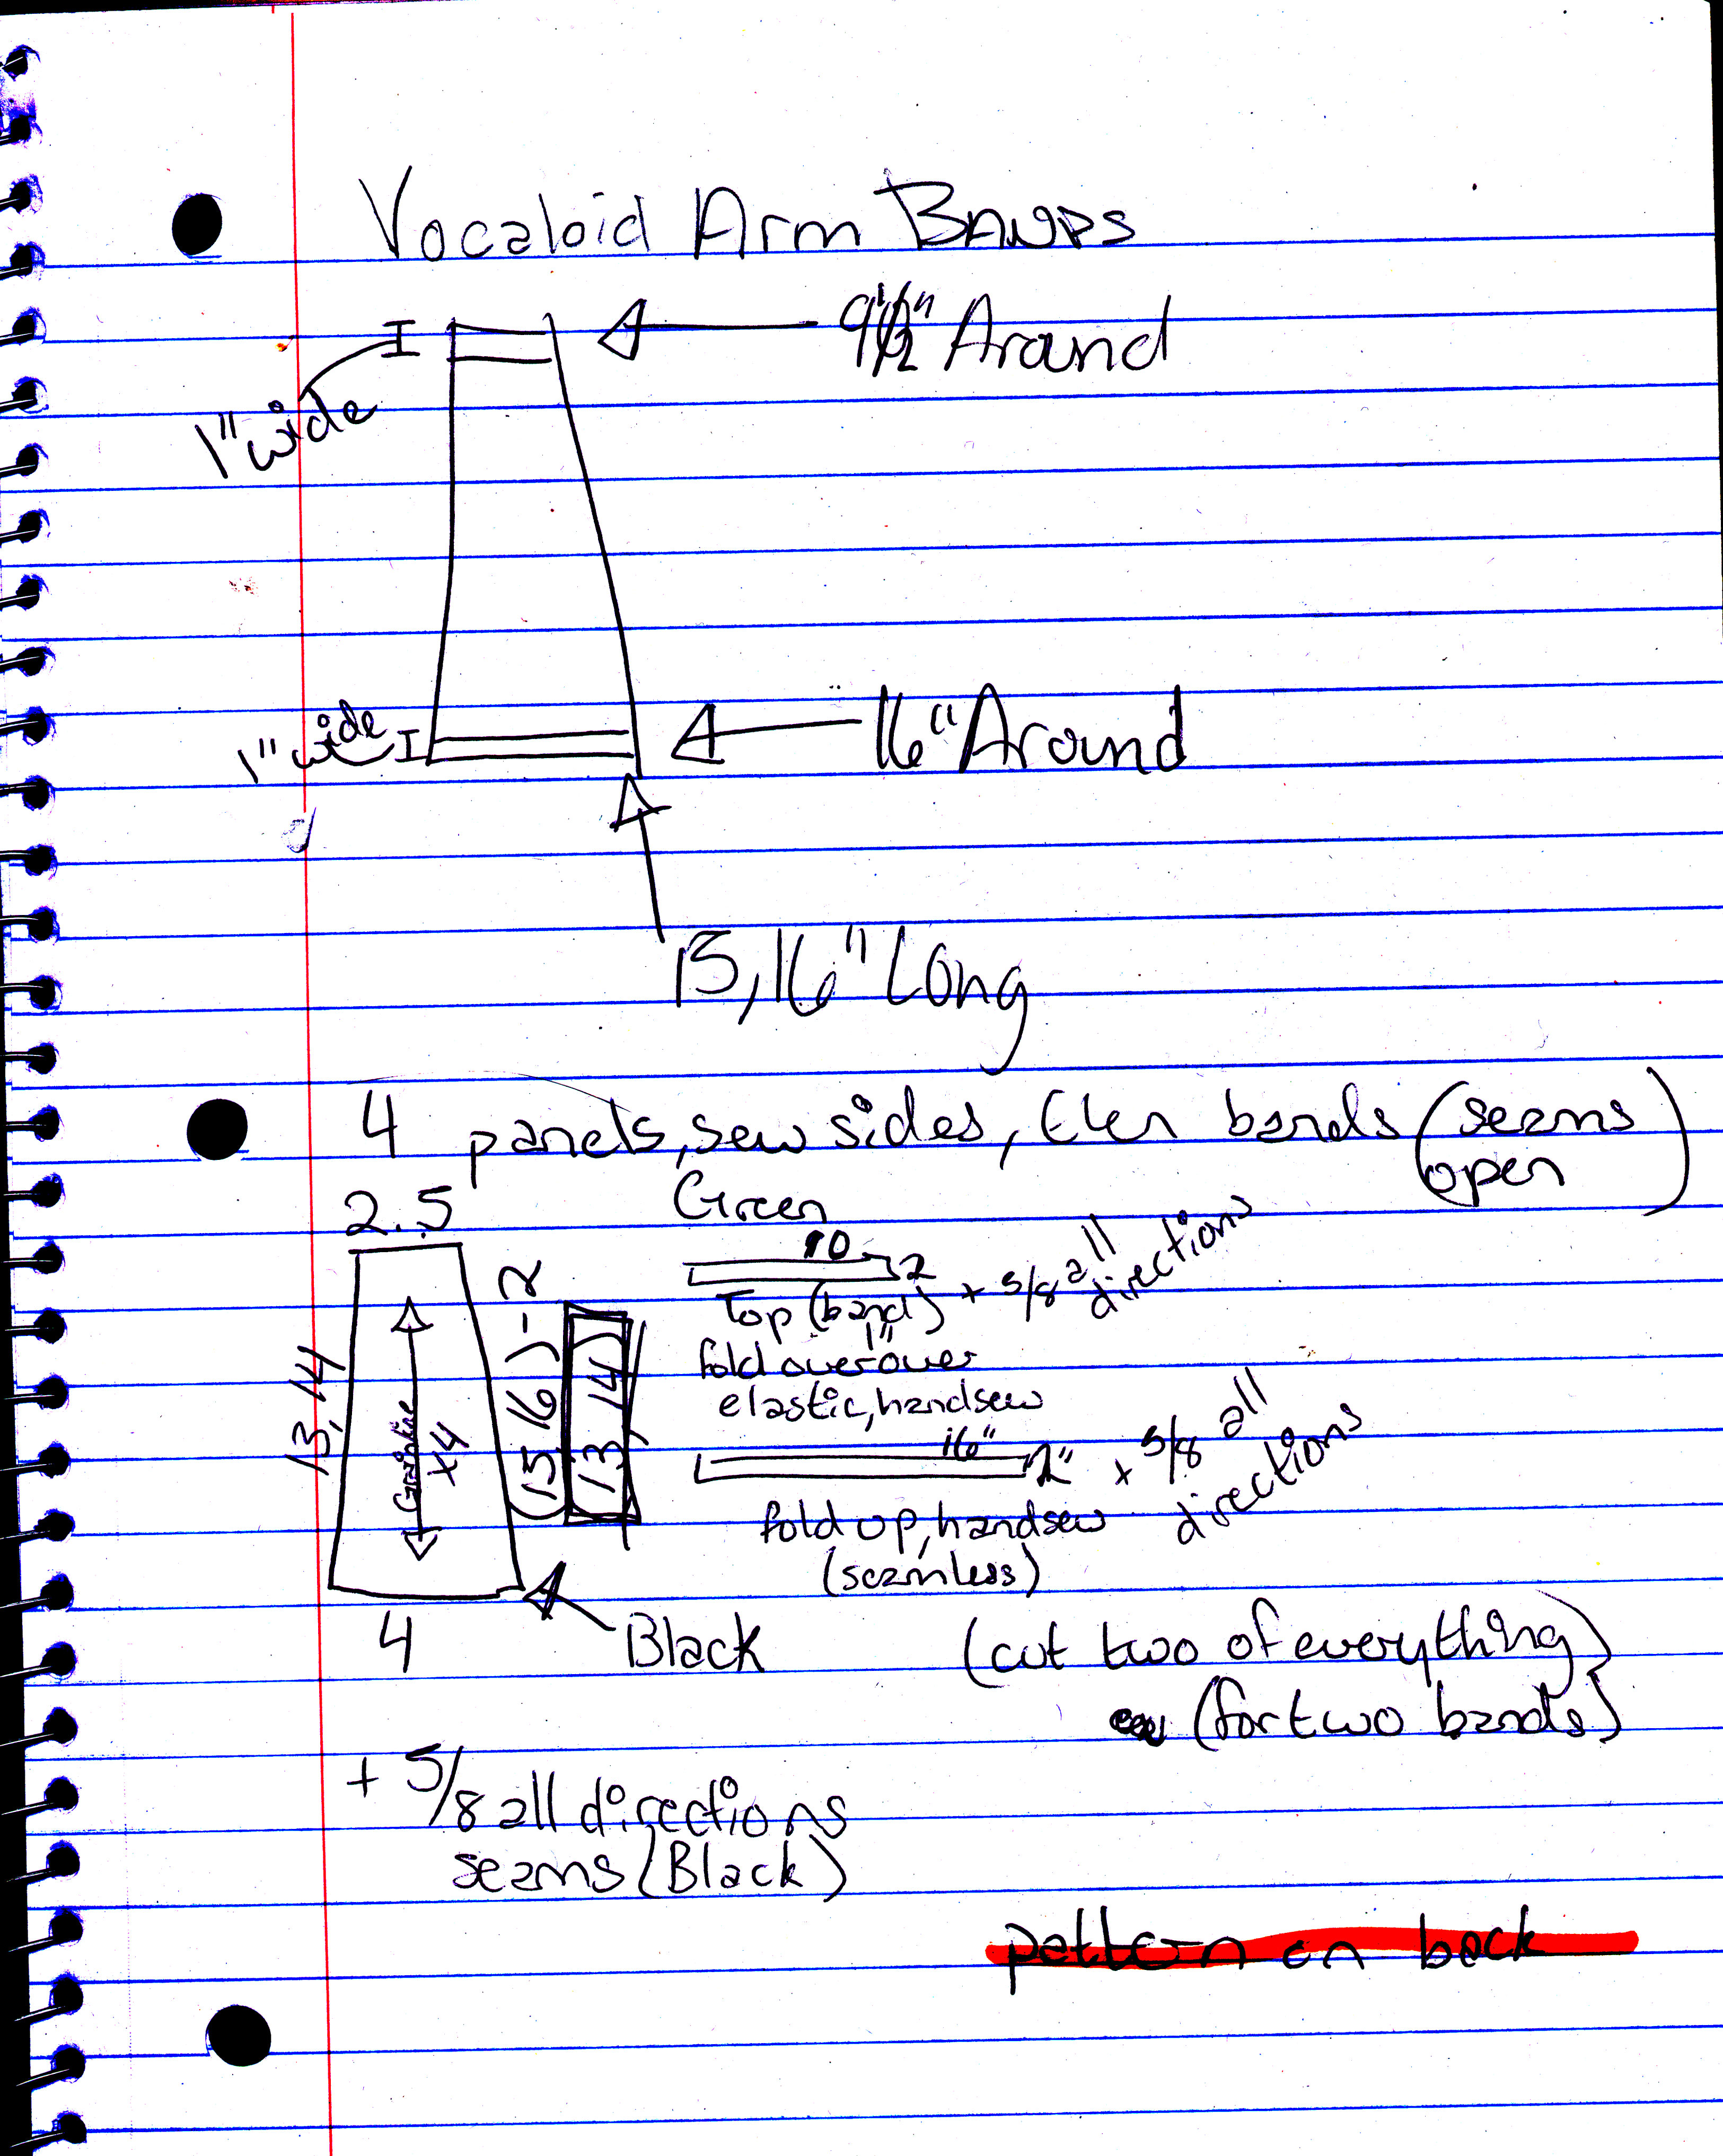 Vocaloid Arm BANDS
9 1/2" Around
1" wide
1" wide
16" Around
15,16" Long
4 panels, sew sides, then bands (seams open)
2.5
Green
10
2
Top (band) + 5/8 all directions
fold over 1" over
elastic, handsew
13,14
Grainline
x4
(15,16)-2
(13,14)
16"
2" + 5/8 all directions
fold up, handsew
(seamless)
4
Black
(cut two of everything
(for two bands)
+ 5/8 all directions
seams (Black)
pattern on back